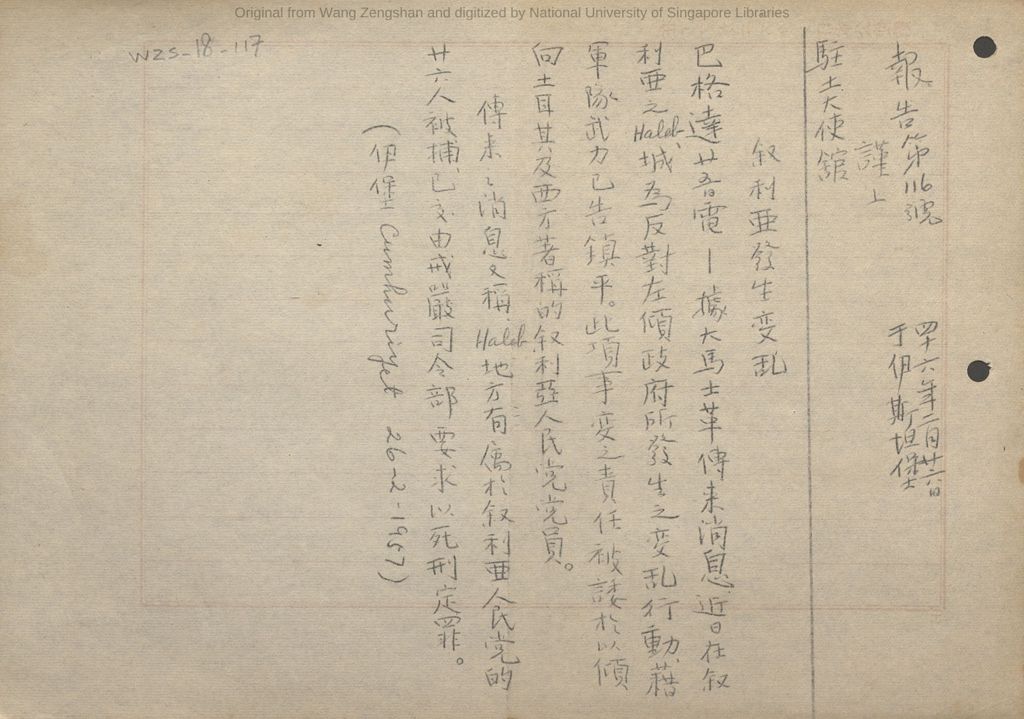 Original from Wang Zengshan and digitized by National University of Singapore Libraries
WZS-18-117
報告第116號
四十六年二月廿六日
于伊斯坦堡
謹上
駐土大使舘
叙利亚發生变乱
巴格達廿五日電—據大馬士革傳来消息近日在叙
利亜之Haleb城為反對左傾政府所發生之变乱行動、藉
軍隊武力已告鎮平。此項事变之責任被諉於以傾
向土耳其及西方著稱的叙利亜人民党党員。
傳来之消息又稱、Haleb地方有属於叙利亜人民党的
廿六人被捕、已交由戒嚴司令部要求以死刑定罪。
(伊堡Cumhuriyet 26-2-1957)